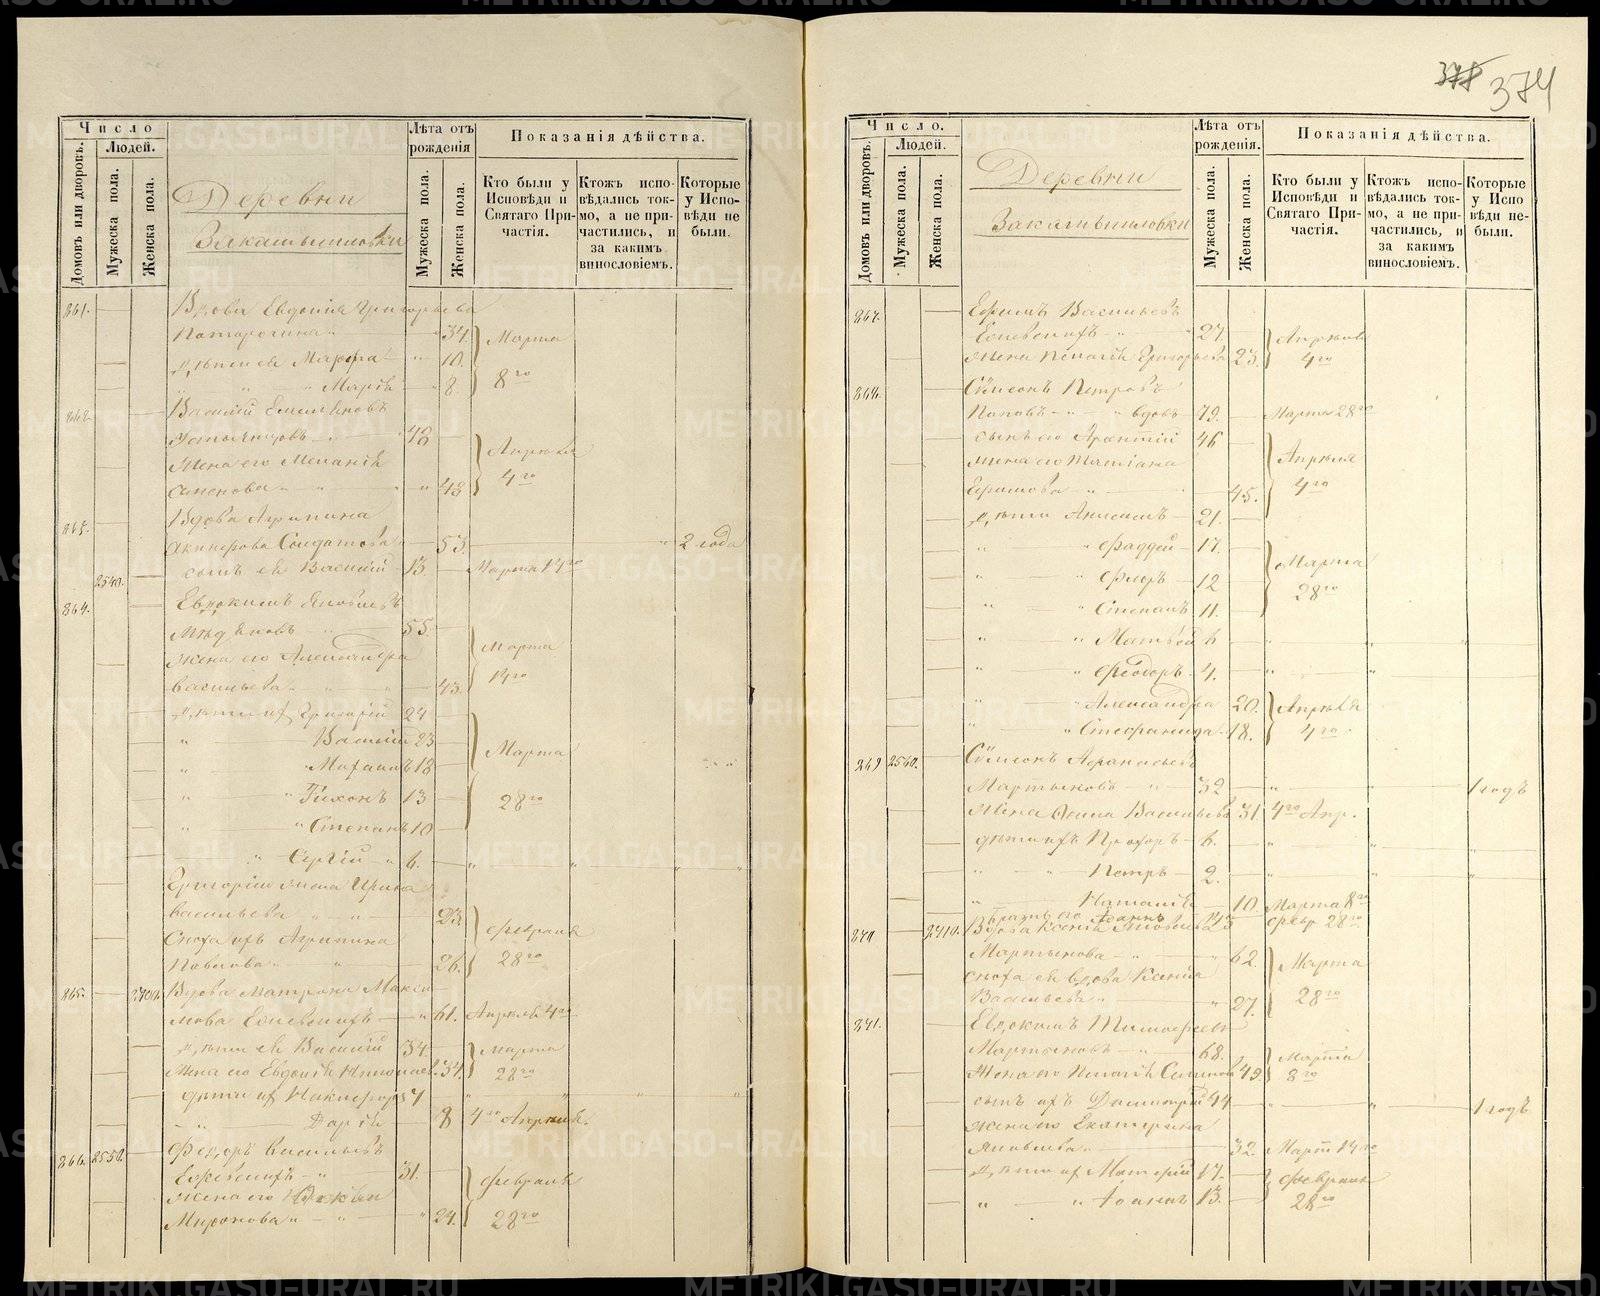 378 374
Число
Людей.
Домовъ или дворовъ.
Мужеска пола.
Женска пола.
Деревни
Лѣта отъ рожденія
Мужеска пола.
Женска пола.
Показанія дѣйства.
Кто были у Исповѣди и Святаго Причастія.
Ктожъ исповѣдались токмо, а не причастились, и за какимъ винословіемъ.
Которые у Исповѣди не были.
861. Вдова Евдокія Григорьева
34. Марта
дѣти ея Марфа 10. 8го
Марія 8
862. Василій Емельяновъ
48 Апрѣля
Жена его Меланія
Семенова 43 4го
Вдова Агрипина
53. 2 года
2540. сынъ ея Василій 13. Марта 14го
864. Евдокимъ Яковлевъ
55. Марта
жена его Александра
Васильева 43. 14го
дѣти их Григорій 24
Василій 23 Марта
Михаилъ 18
Тихонъ 13 28го
Степанъ 10
Сергій 6.
Григорія жена Ирина
Васильева 23. февраля
Сноха ихъ Агрипина
Павлова 26. 28го
865. Вдова Матрона Макси-
мова 61. Апрѣля 4го
дѣти ея Василій 34. Марта
Жена его Евдокія 34. 28го
дѣти их Никифоръ 7
Дарія 8 4го Апрѣля.
866. 2550. Федоръ Васильевъ
31. февраля
Жена его
Миронова 24. 28го
Число.
Людей.
Домовъ или дворовъ.
Мужеска пола.
Женска пола.
Деревни
Лѣта отъ рожденія.
Мужеска пола.
Женска пола.
Показанія дѣйства.
Кто были у Исповѣди и Святаго Причастія.
Ктожъ исповѣдались токмо, а не причастились, и за какимъ винословіемъ.
Которые у Исповѣди не были.
867. Ефимъ Васильевъ
27. Апрѣля
Жена Пелагія Григорьева 23. 4го
868. Сѵмеонъ Петровъ
Поповъ вдовъ 79. Марта 28го
сынъ его 46
жена его Татіана Апрѣля
45. 4го
дѣти 21.
Фаддей 17. Марта
Флоръ 12 28го
Степанъ 11.
Матвѣй 6
Феодоръ 4.
Александра 20. Апрѣля
Стефанида 18. 4го
869 2560. Сѵмеонъ Афанасьевъ
Мартыновъ 32 1 годъ
Жена Анна Васильева 31. 4го Апр.
дѣти ихъ Прохоръ 6.
Петръ 2.
Наталія 10. Марта 8го
братъ его Іоаннъ 23 февр 28го
870 2710. Вдова Ксенія
Мартынова 62. Марта
сноха ея вдова Ксенія
Васильева 27. 28го
871. Евдокимъ Тимофеевъ
Мартыновъ 68. Марта
Жена его Пелагія 49. 8го
сынъ ихъ Димитрій 44 1 годъ
жена его Екатерина
Яковлева 32. Март 14го
дѣти их 17. февраля
Іоаннъ 13. 28го
METRIKI.GASO-URAL.RU